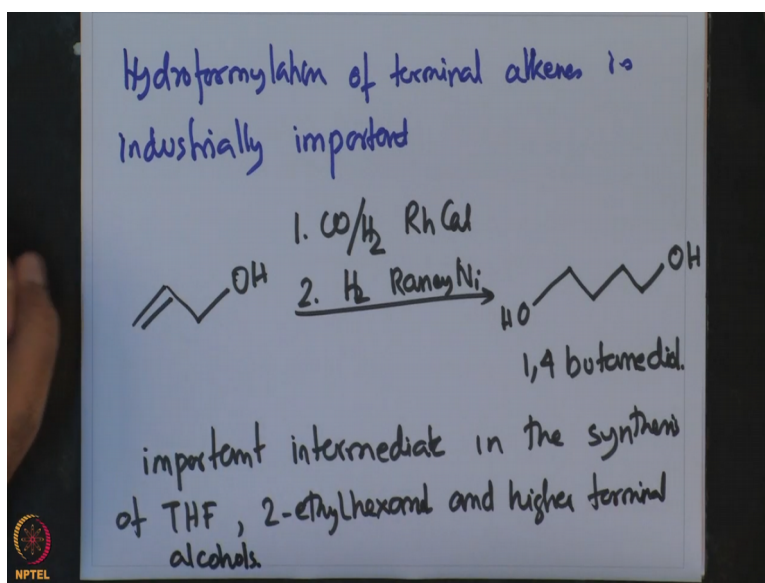 Hydroformylation of terminal alkenes is
industrially important
1. CO/H2 Rh Cat
2. H2 Raney Ni
OH
OH
HO
1,4 butanediol.
important intermediate in the synthesis
of THF, 2-ethylhexanol and higher terminal
alcohols.
NPTEL